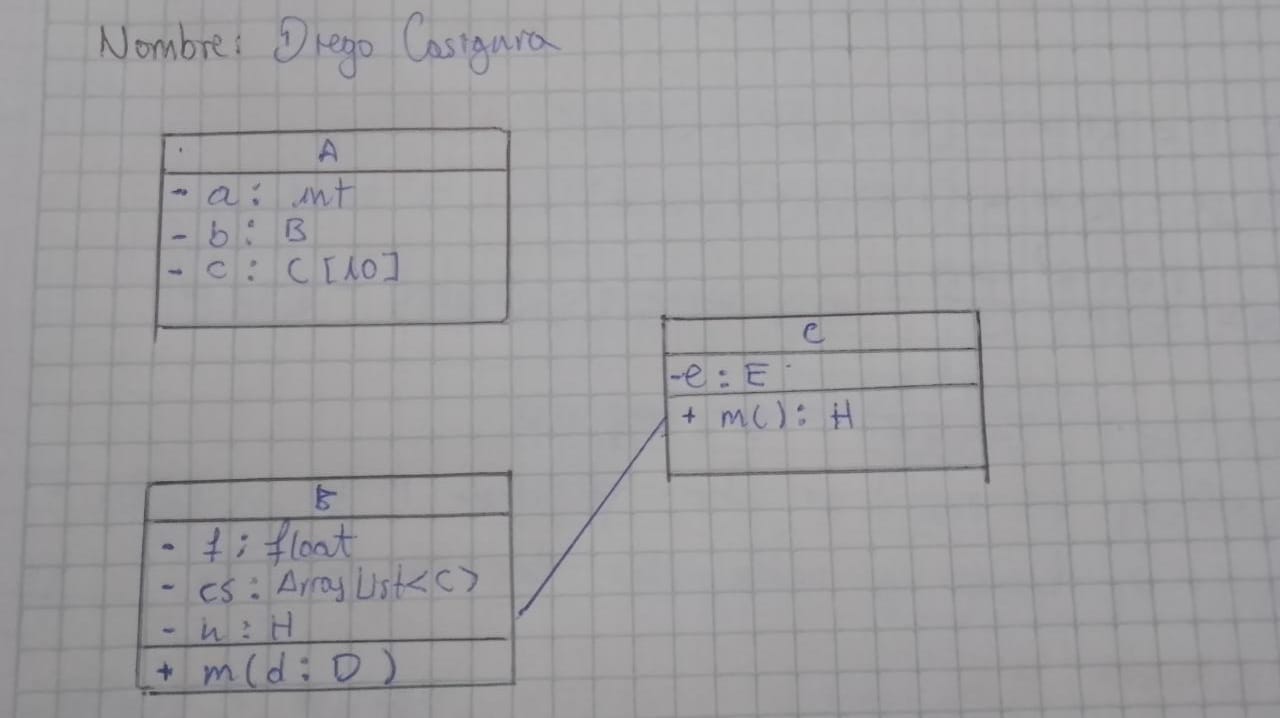 Nombre: Diego Casigura
A
- a: int
- b: B
- c: C[10]
C
-e: E
+ m(): H
B
- f: float
- cs: ArrayList<C>
- h: H
+ m(d: D)